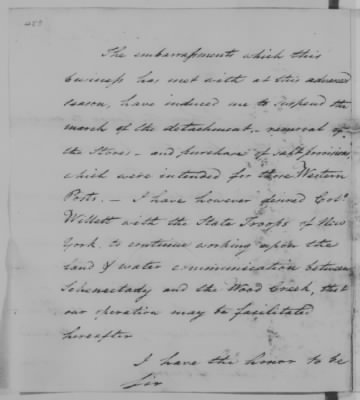 The embarrassments which this
business has met with at this advanced
season, have induced me to suspend the
march of the detachment - removal of
the Stores - and purchase of provisions
which were intended for those Western
Posts. - I have however desired Col.
Willett with the State Troops of New
York, to continue working upon the
land & water communication between
Schenectady and the Wood Creek, that
our operation may be facilitated
hereafter
I have the honor to be
Sir